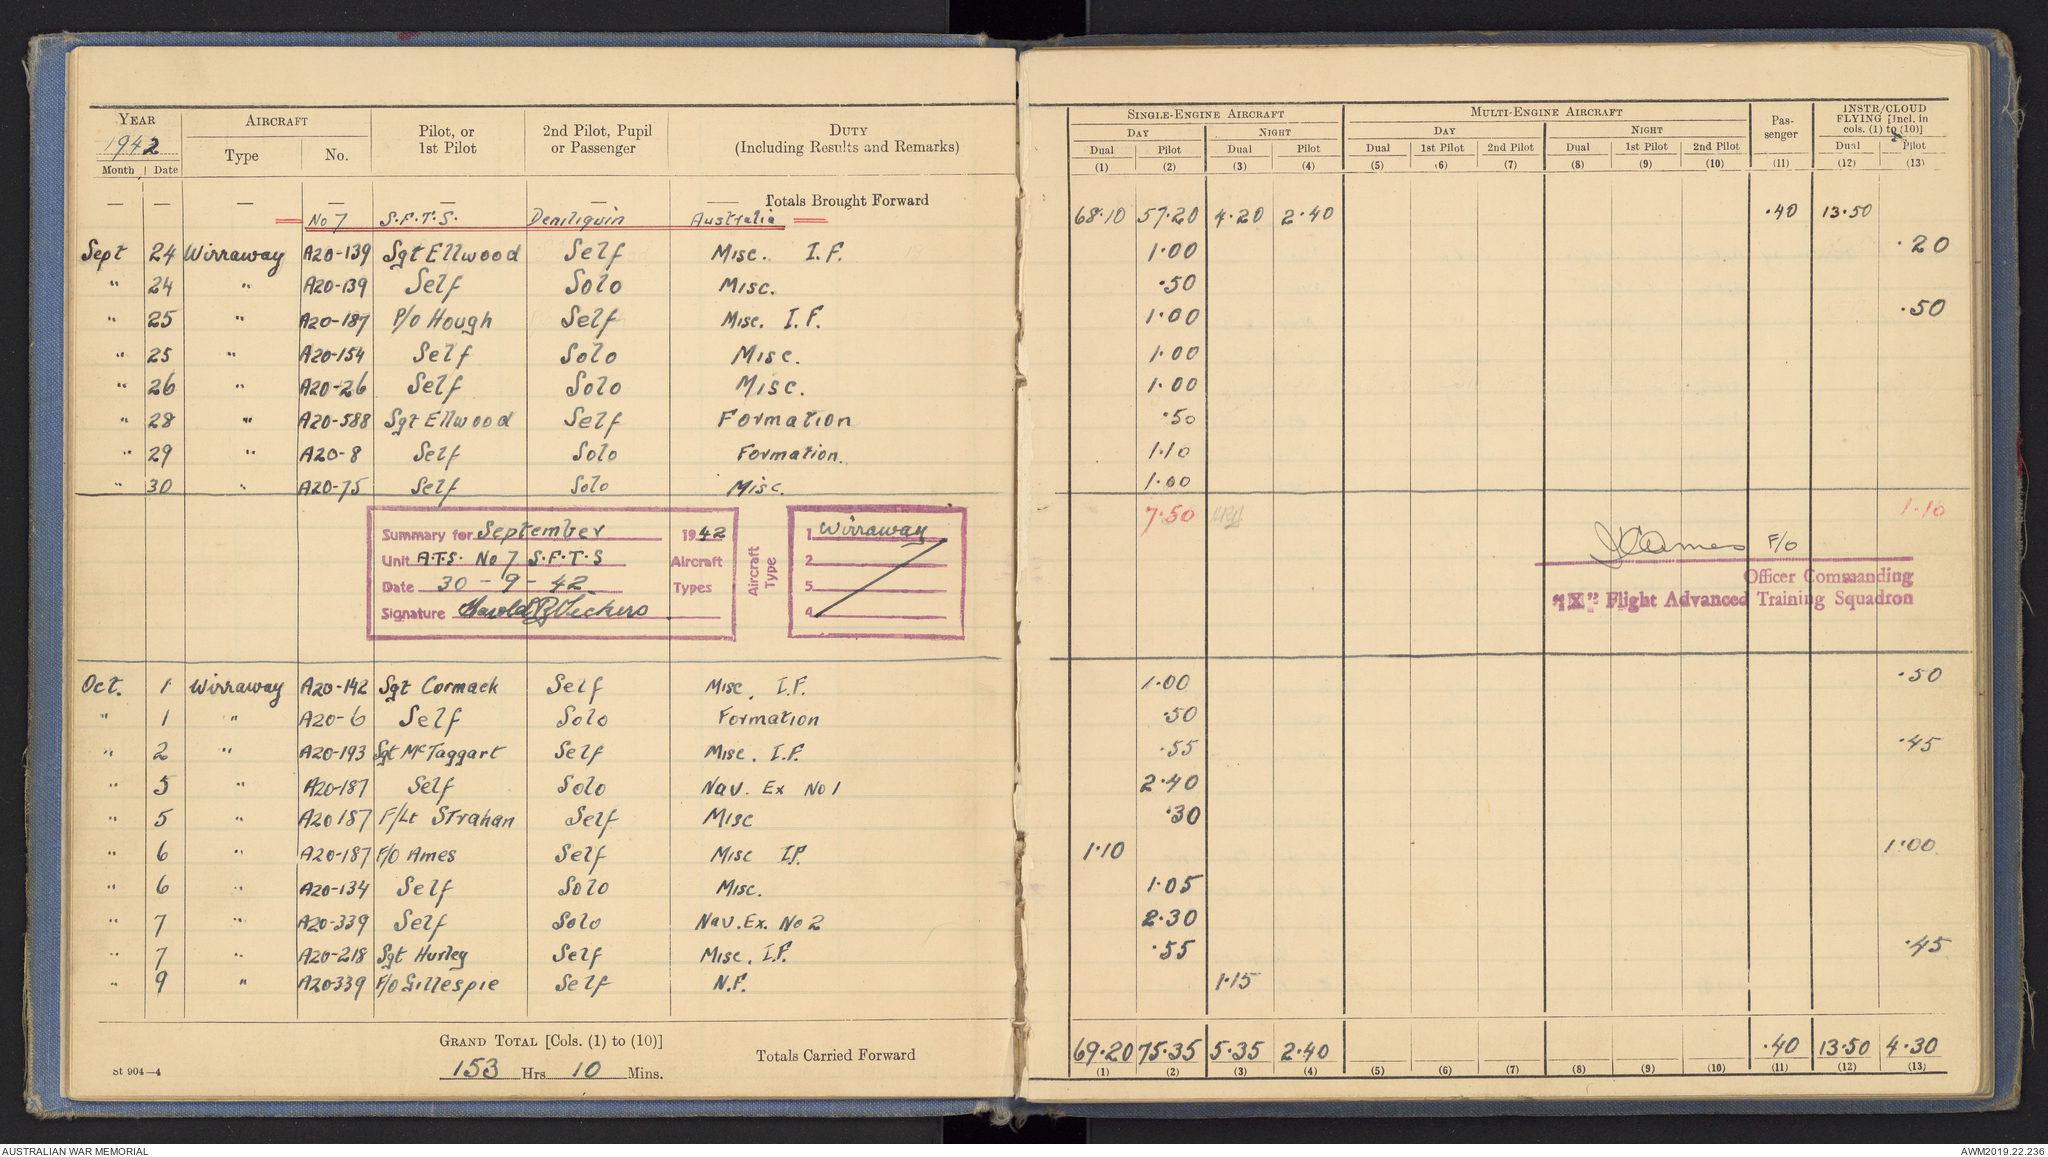 YEAR AIRCRAFT Pilot, or 1st Pilot 2nd Pilot, Pupil or Passenger DUTY (Including Results and Remarks) SINGLE-ENGINE AIRCRAFT MULTI-ENGINE AIRCRAFT Pas-senger INSTR/CLOUD FLYING [Incl. in cols. (1) to (10)]
1942 Type No. DAY NIGHT DAY NIGHT
Month Date Dual Pilot Dual Pilot Dual 1st Pilot 2nd Pilot Dual 1st Pilot 2nd Pilot Dual Pilot
(1) (2) (3) (4) (5) (6) (7) (8) (9) (10) (11) (12) (13)
— — — — — — — Totals Brought Forward
No 7 S.F.T.S. Deniliquin Australia 68.10 57.20 4.20 2.40 .40 13.50
Sept 24 Wirraway A20-139 Sgt Ellwood Self Misc. I.F. 1.00 .20
" 24 " A20-139 Self Solo Misc. .50
" 25 " A20-187 P/O Hough Self Misc. I.F. 1.00 .50
" 25 " A20-154 Self Solo Misc. 1.00
" 26 " A20-26 Self Solo Misc. 1.00
" 28 " A20-588 Sgt Ellwood Self Formation .50
" 29 " A20-8 Self Solo Formation. 1.10
" 30 " A20-75 Self Solo Misc. 1.00
7.50 1.10
Summary for September 1942
Unit A.T.S. No 7 S.F.T.S Aircraft
Date 30-9-42 Types
Signature Harold B Vickers
Aircraft Type
1 Wirraway
2
3
4
F/O
Officer Commanding
"IX" Flight Advanced Training Squadron
Oct. 1 Wirraway A20-142 Sgt Cormack Self Misc. I.F. 1.00 .50
" 1 " A20-6 Self Solo Formation .50
" 2 " A20-193 Sgt McTaggart Self Misc. I.F. .55 .45
" 5 " A20-187 Self Solo Nav. Ex No 1 2.40
" 5 " A20 187 F/Lt Strahan Self Misc .30
" 6 " A20-187 F/O Ames Self Misc I.F. 1.10 1.00
" 6 " A20-134 Self Solo Misc. 1.05
" 7 " A20-339 Self Solo Nav. Ex. No 2 2.30
" 7 " A20-218 Sgt Hurley Self Misc. I.F. .55 .45
" 9 " A20339 F/O Gillespie Self N.F. 1.15
GRAND TOTAL [Cols. (1) to (10)]
153 Hrs 10 Mins.
Totals Carried Forward 69.20 75.35 5.35 2.40 .40 13.50 4.30
(1) (2) (3) (4) (5) (6) (7) (8) (9) (10) (11) (12) (13)
St 904—4
AUSTRALIAN WAR MEMORIAL AWM2019.22.236